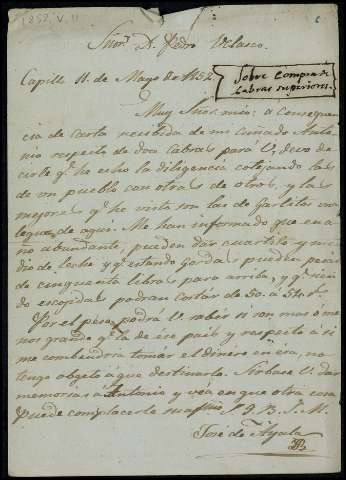 1852. V. 11
Sñor. D. Pedro Velasco.
Capilla 11. de Mayo de 1852.
Sobre Compra de
Cabras superiores.
Muy Sñor. mio: a consequen
cia de carta recivida de mi Cuñado Anto
nio respecto de dos Cabras para V., devo de
cirle q.e he echo la diligencia cotejando las
de un pueblo con otras de otros, y las
mejores q.e he visto son las de Garlitos
legua de aqui. Me han informado que en a
ño abundante, pueden dar cuartillo y me
dio de leche y q.e estando gordas pueden pesar
de cincuenta libras para arriba, y q.e sien
do escojidas podran costar de 50. a 54. r.s
Por el peso podrá V. saber si son mas ó me
nos grandes q.e la de ese pais y respecto á si
me combendria tomar el dinero en esa, no
tengo objeto á que destinarlo. Sirbase V. dar
memorias a Antonio y vea en que otra cosa
puede complacerle su af.mo S. q. B. S. M.
José de Ayala